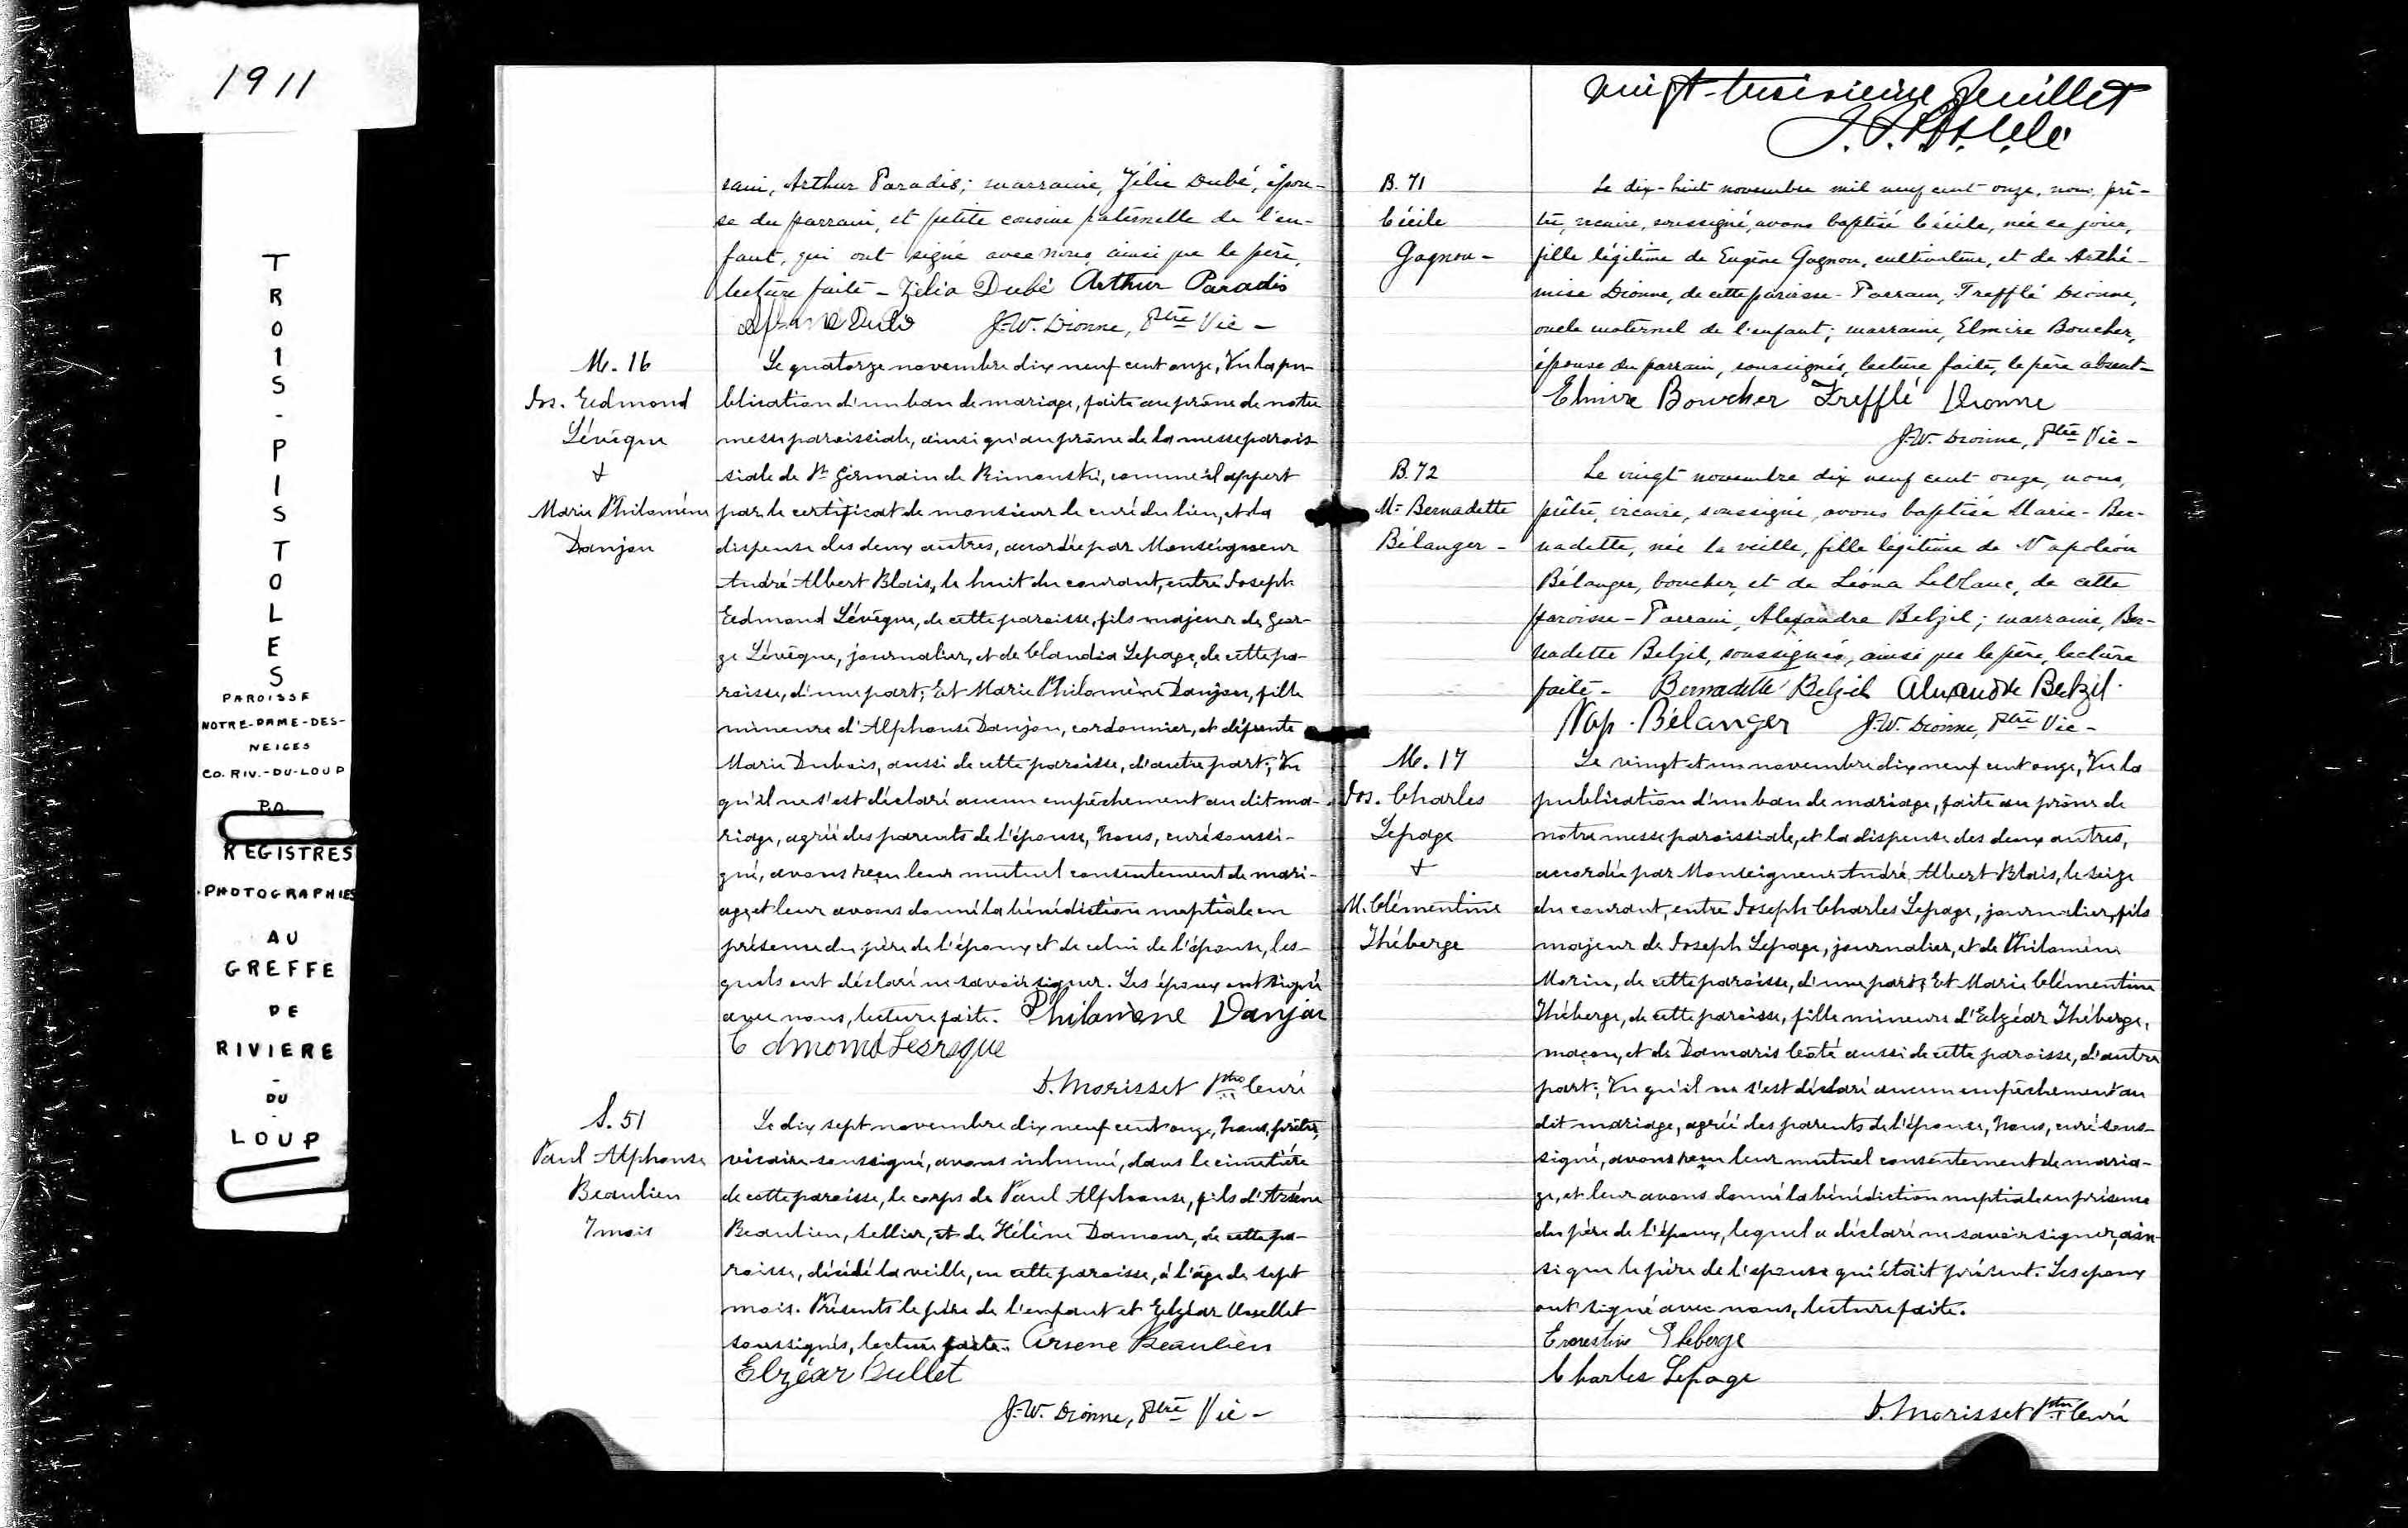 1911
TROIS-PISTOLES
PAROISSE
NOTRE-DAME-DES-
NEIGES
CO. RIV.-DU-LOUP
P.Q.
REGISTRES
PHOTOGRAPHIES
AU
GREFFE
DE
RIVIERE
-
DU
-
LOUP
rain, Arthur Paradis; marraine, Zélie Dubé, épou-
se du parrain, et petite cousine paternelle de l'en-
fant, qui ont signé avec nous, ainsi que le père,
lecture faite - Zélia Dubé Arthur Paradis
J.-W. Dionne, Ptre Vic -
M. 16
Jos. Edmond
Lévêque
+
Marie Philomène
Danjou
Le quatorze novembre dix neuf cent onze, Vu la pu-
blication d'un ban de mariage, faite au prône de notre
messe paroissiale, ainsi qu'au prône de la messe parois-
siale de St Germain de Rimouski, comme il appert
par le certificat de monsieur le curé du lieu, et la
dispense des deux autres, accordée par Monseigneur
André Albert Blais, le huit du courant, entre Joseph
Edmond Lévêque, de cette paroisse, fils majeur de Geor-
ge Lévêque, journalier, et de Claudia Lepage, de cette pa-
roisse, d'une part; Et Marie Philomène Danjou, fille
mineure d'Alphonse Danjou, cordonnier, et défunte
Marie Dubois, aussi de cette paroisse, d'autre part; Vu
qu'il ne s'est déclaré aucun empêchement au dit ma-
riage, agréé des parents de l'épouse, Nous, curé soussi-
gné, avons reçu leur mutuel consentement de mari-
age, et leur avons donné la bénédiction nuptiale en
présence du père de l'époux et de celui de l'épouse, les-
quels ont déclaré ne savoir signer. Les époux ont signé
avec nous, lecture faite. Philomène Danjou
Edmond Levesque
D. Morisset Ptre Curé
S. 51
Paul Alphonse
Beaulieu
7 mois
Le dix sept novembre dix neuf cent onze, Nous, prêtre,
vicaire soussigné, avons inhumé, dans le cimetière
de cette paroisse, le corps de Paul Alphonse, fils d'Arsène
Beaulieu, sellier, et de Hélène Damour, de cette pa-
roisse, décédé la veille, en cette paroisse, à l'âge de sept
mois. Présents le père de l'enfant et Elzéar Ouellet
soussignés, lecture faite. Arsene Beaulieu
Elzéar Oullet
J.-W. Dionne, Ptre Vic -
vingt-troisieme feuillet
B. 71
Cécile
Gagnon -
Le dix-huit novembre mil neuf cent onze, nous, prê-
tre, vicaire, soussigné, avons baptisé Cécile, née ce jour,
fille légitime de Eugène Gagnon, cultivateur, et de Arthé-
mise Dionne, de cette paroisse - Parrain, Trefflé Dionne,
oncle maternel de l'enfant; marraine, Elmire Boucher,
épouse du parrain, soussignés, lecture faite, le père absent -
Elmire Boucher Trefflé Dionne
J.-W. Dionne, Ptre Vic -
B. 72
M= Bernadette
Bélanger -
Le vingt novembre dix neuf cent onze, nous,
prêtre, vicaire, soussigné, avons baptisé Marie-Ber-
nadette, née la veille, fille légitime de Napoléon
Bélanger, boucher, et de Léona Leblanc, de cette
paroisse - Parrain, Alexandre Belzil; marraine, Ber-
nadette Belzil, soussignés, ainsi que le père, lecture
faite - Bernadette Belzil Alexandre Belzil
Nap. Bélanger J.-W. Dionne, Ptre Vic -
M. 17
Jos. Charles
Lepage
+
M. Clémentine
Théberge
Le vingt et un novembre dix neuf cent onze, Vu la
publication d'un ban de mariage, faite au prône de
notre messe paroissiale, et la dispense des deux autres,
accordée par Monseigneur André Albert Blais, le seize
du courant, entre Joseph Charles Lepage, journalier, fils
majeur de Joseph Lepage, journalier, et de Philomène
Morin, de cette paroisse, d'une part; Et Marie Clémentine
Théberge, de cette paroisse, fille mineure d'Elzéar Théberge,
maçon, et de Damaris Côté aussi de cette paroisse, d'autre
part; Vu qu'il ne s'est déclaré aucun empêchement au
dit mariage, agréé des parents de l'épouse, Nous, curé sous-
signé, avons reçu leur mutuel consentement de maria-
ge, et leur avons donné la bénédiction nuptiale en présence
du père de l'époux, lequel a déclaré ne savoir signer, ain-
si que le père de l'epouse qui était présent. Les epoux
ont signé avec nous, lecture faite.
Théberge
Charles Lepage
D. Morisset Ptre Curé